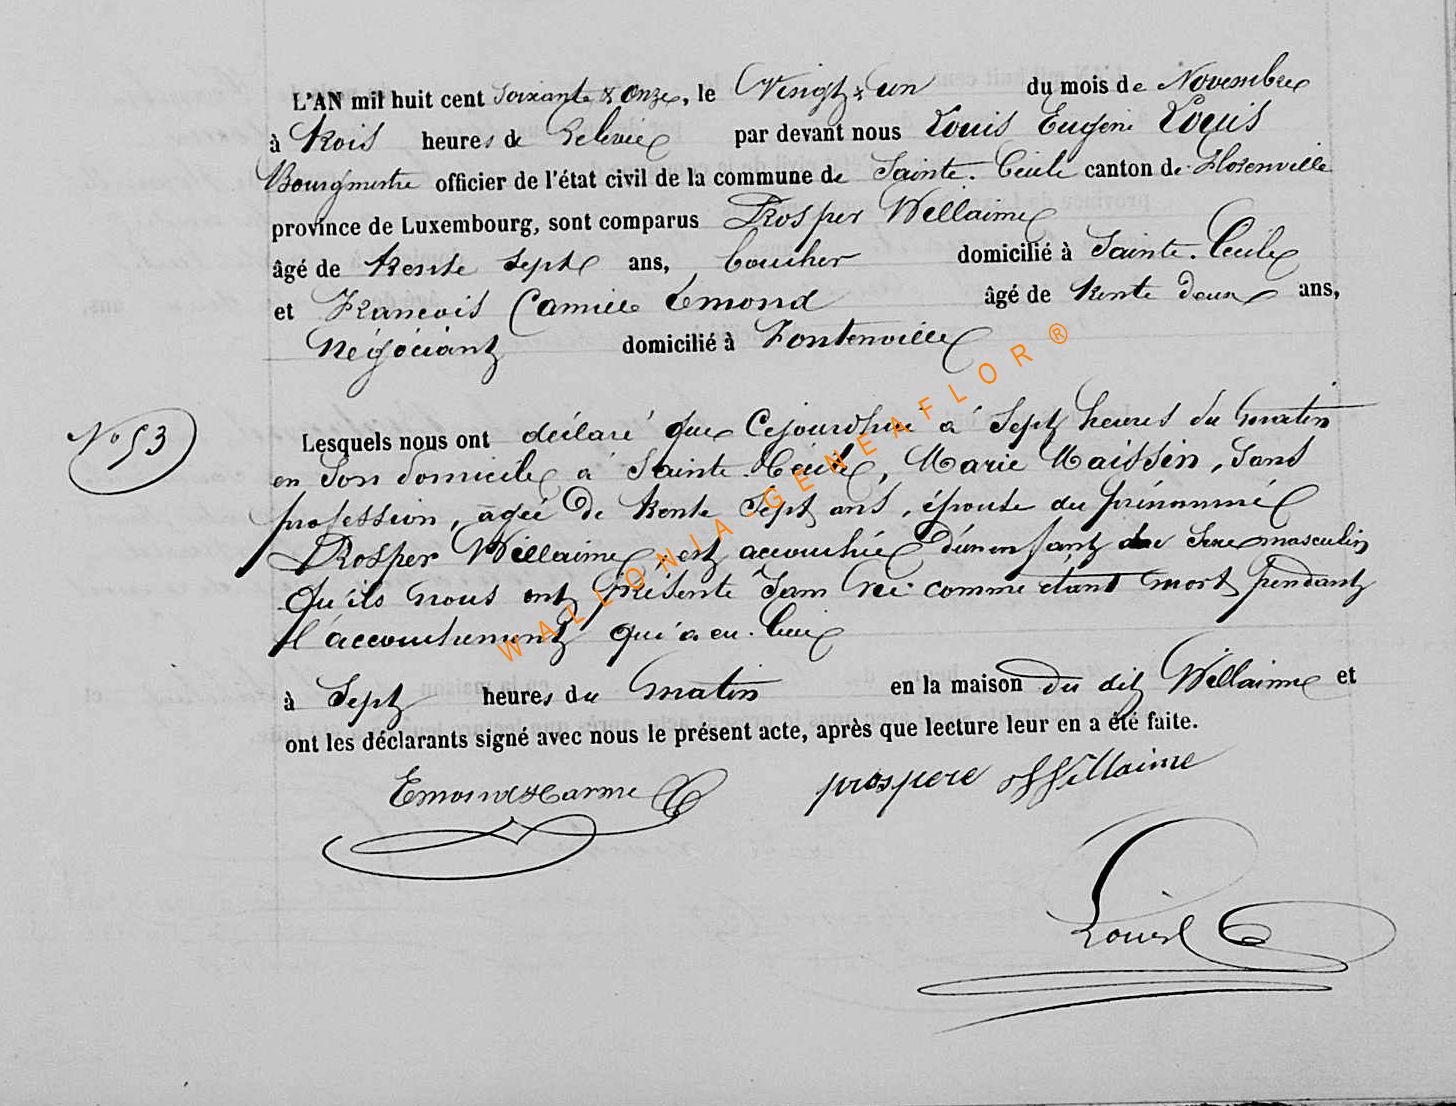 L'AN mil huit cent Soixante & Onze, le Vingt & un du mois de Novembre
à trois heures de Relevée par devant nous Louis Eugene Louis
Bourgmestre officier de l'état civil de la commune de Sainte-Cécile canton de Florenville
province de Luxembourg, sont comparus Prosper Willaime
âgé de trente sept ans, boucher domicilié à Sainte-Cécile
et Francois Camille Emond âgé de trente deux ans,
Négociant domicilié à Fontenville
No 53
Lesquels nous ont déclaré que Cejourdhui à Sept heures du matin
en Son domicile à Sainte-Cécile, Marie Maissin, Sans
profession, agée de trente Sept ans, épouse du prénommé
Prosper Willaime, est accouchée d'un enfant de Sexe masculin
Qu'ils nous ont présenté Sans vie comme étant mort pendant
l'accouchement qui a eu lieu
à Sept heures du matin en la maison du dit Willaime et
ont les déclarants signé avec nous le présent acte, après que lecture leur en a été faite.
Emond prospere Willaime
Louis
WALLONIA-GENEAFLOR®